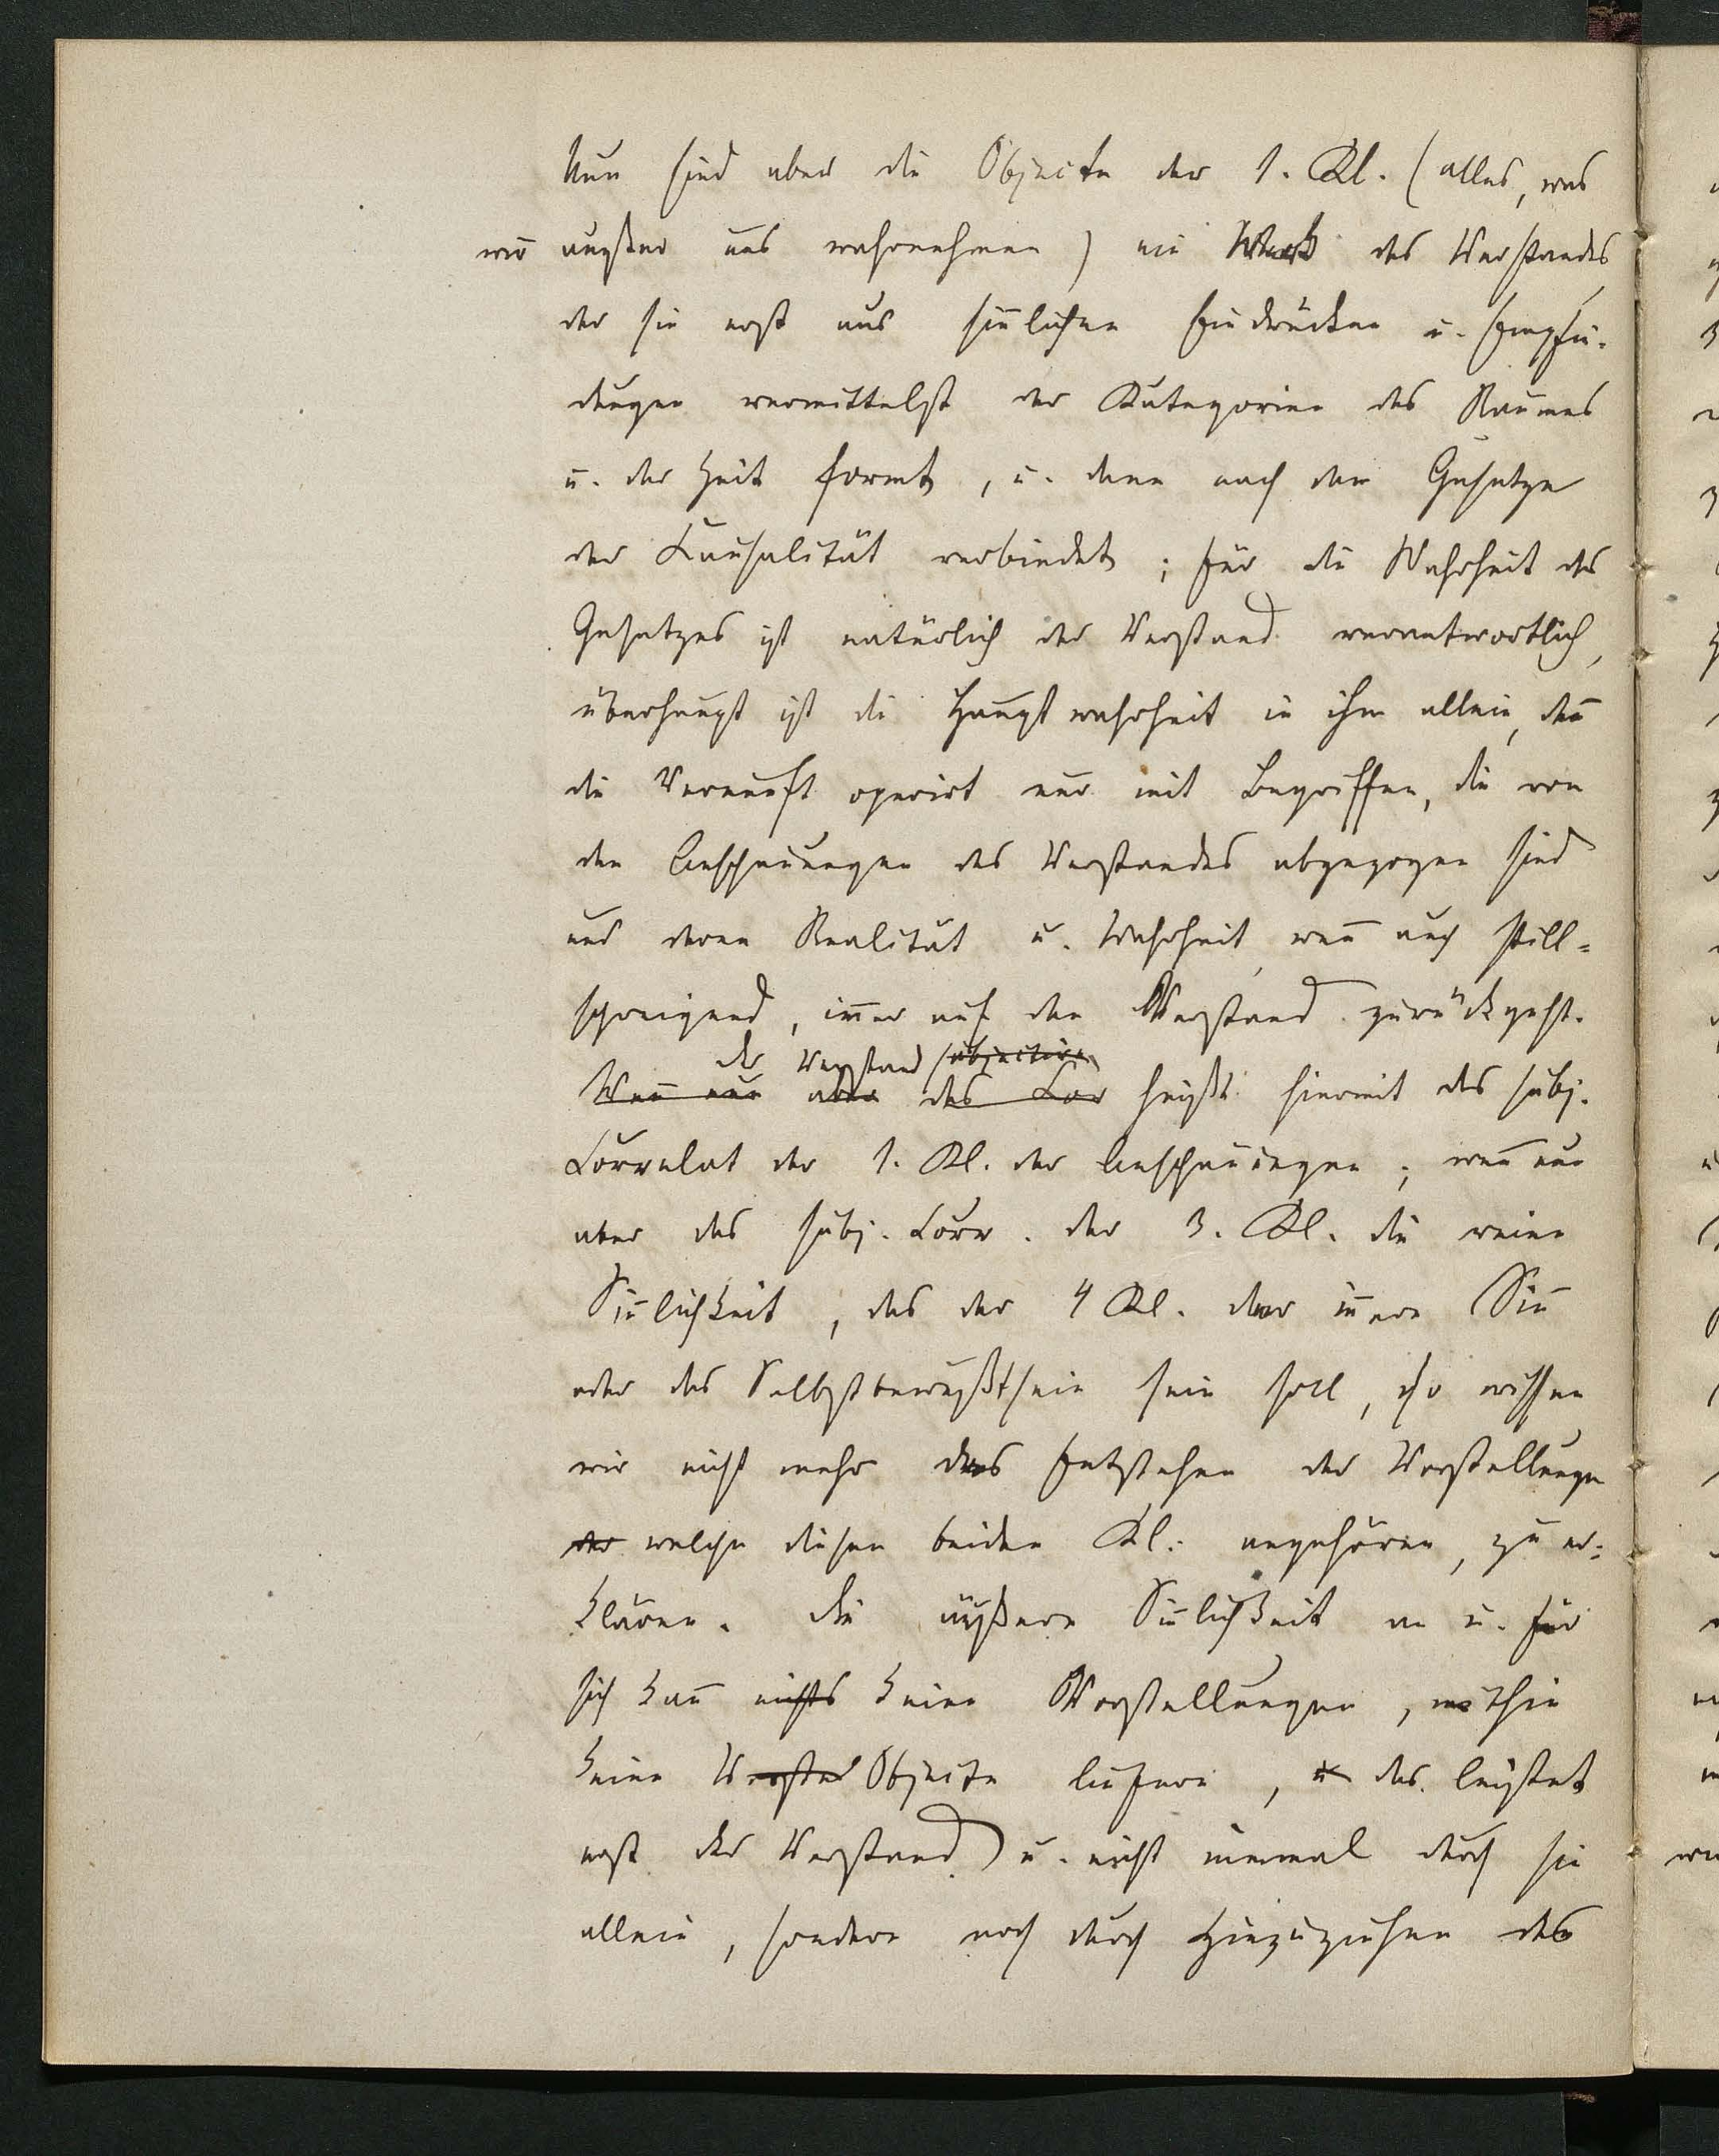 Nun sind aber die Objecte der 1. Kl. (alles, was
wir außer uns wahrnehmen) ein Werk des Verstandes
der sie erst aus sin̄lichen Eindrücken u. Empfin-
dungen vermittelst der Kategorien des Raumes
u. der Zeit formt, u. dann nach dem Gesetze
der Kausalität verbindet; für die Wahrheit des
Gesetzes ist natürlich der Verstand verantwortlich,
überhaupt ist die Hauptwahrheit in ihm allein, den̄
die Vernunft operirt nur mit Begriffen, die von
den Anschauungen des Verstandes abgezogen sind
und deren Realität u. Wahrheit, wen̄ auch still-
schweigend, im̄er auf den Verstand zurückgeht.
der Verstand subjective
Wen̄ nun aber das Cor heißt hiermit das subj.
Correlat der 1. Kl. der Anschauungen; wen̄ nun
aber das subj. Corr. der 3. Kl. die reine
Sin̄lichkeit, das der 4 Kl. der in̄ere Sin̄
oder das Selbstbewußtsein sein soll, so wissen
wir nicht mehr das Entstehen der Vorstellungen
der welche diesen beiden Kl. angehören, zu er-
klären. Die äußere Sin̄lichkeit an u. für
sich kan̄ nichts keine Vorstellungen, mithin
keine Vorstel Objecte liefern, u das leistet
erst der Verstand) u. nicht einmal durch sie
allein, sondern noch durch Hinzuziehen des